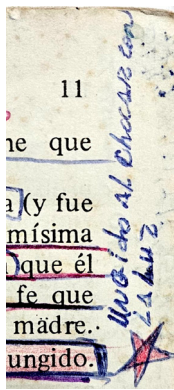 11
ne que
a (y fue
mísima
que él
fe que
mädre.
ungido.
Ungido al
la luz